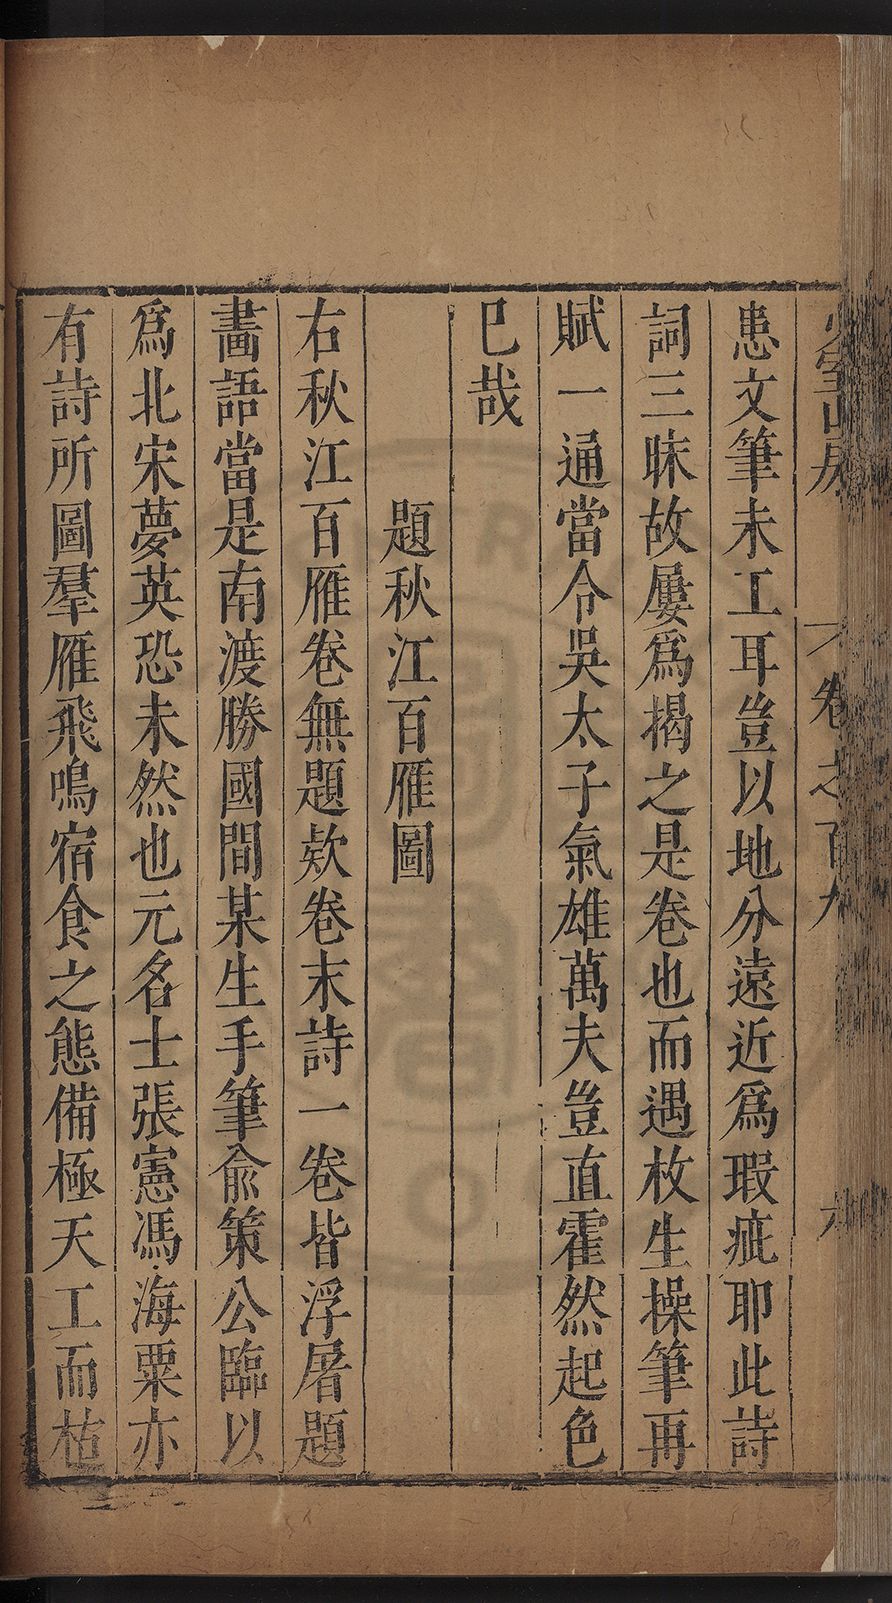 患文筆未工耳豈以地分遠近爲瑕疵耶此詩
詞三昧故屢爲揭之是卷也而遇枚生操筆再
賦一通當令吳太子氣雄萬夫豈直霍然起色
巳哉
題秋江百雁圖
右秋江百雁卷無題欵卷末詩一卷皆浮屠題
畫語當是南渡勝國間某生手筆俞策公臨以
爲北宋夢英恐未然也元名士張憲馮海粟亦
有詩所圖羣雁飛鳴宿食之態備極天工而枯
卷之百九